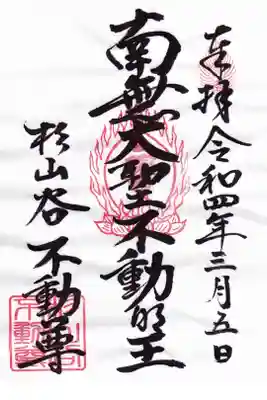 奉拝 令和四年三月五日
南無大聖不動明王
杉山谷 不動尊